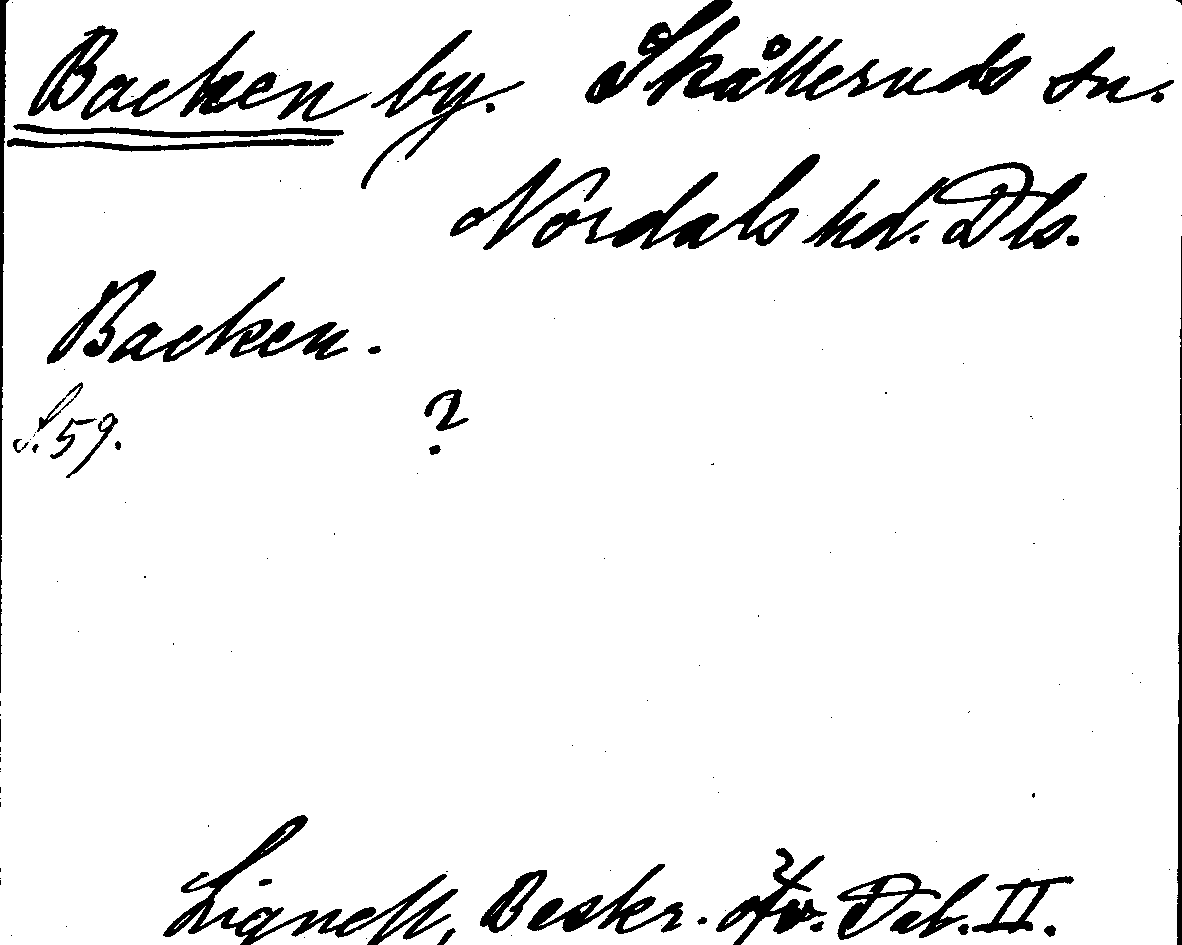 Backen by. Skålleruds sn.
Nordals hd. Dls.
Backen.
S. 59. ?
Lignell, Beskr. öfv. Dal. II.